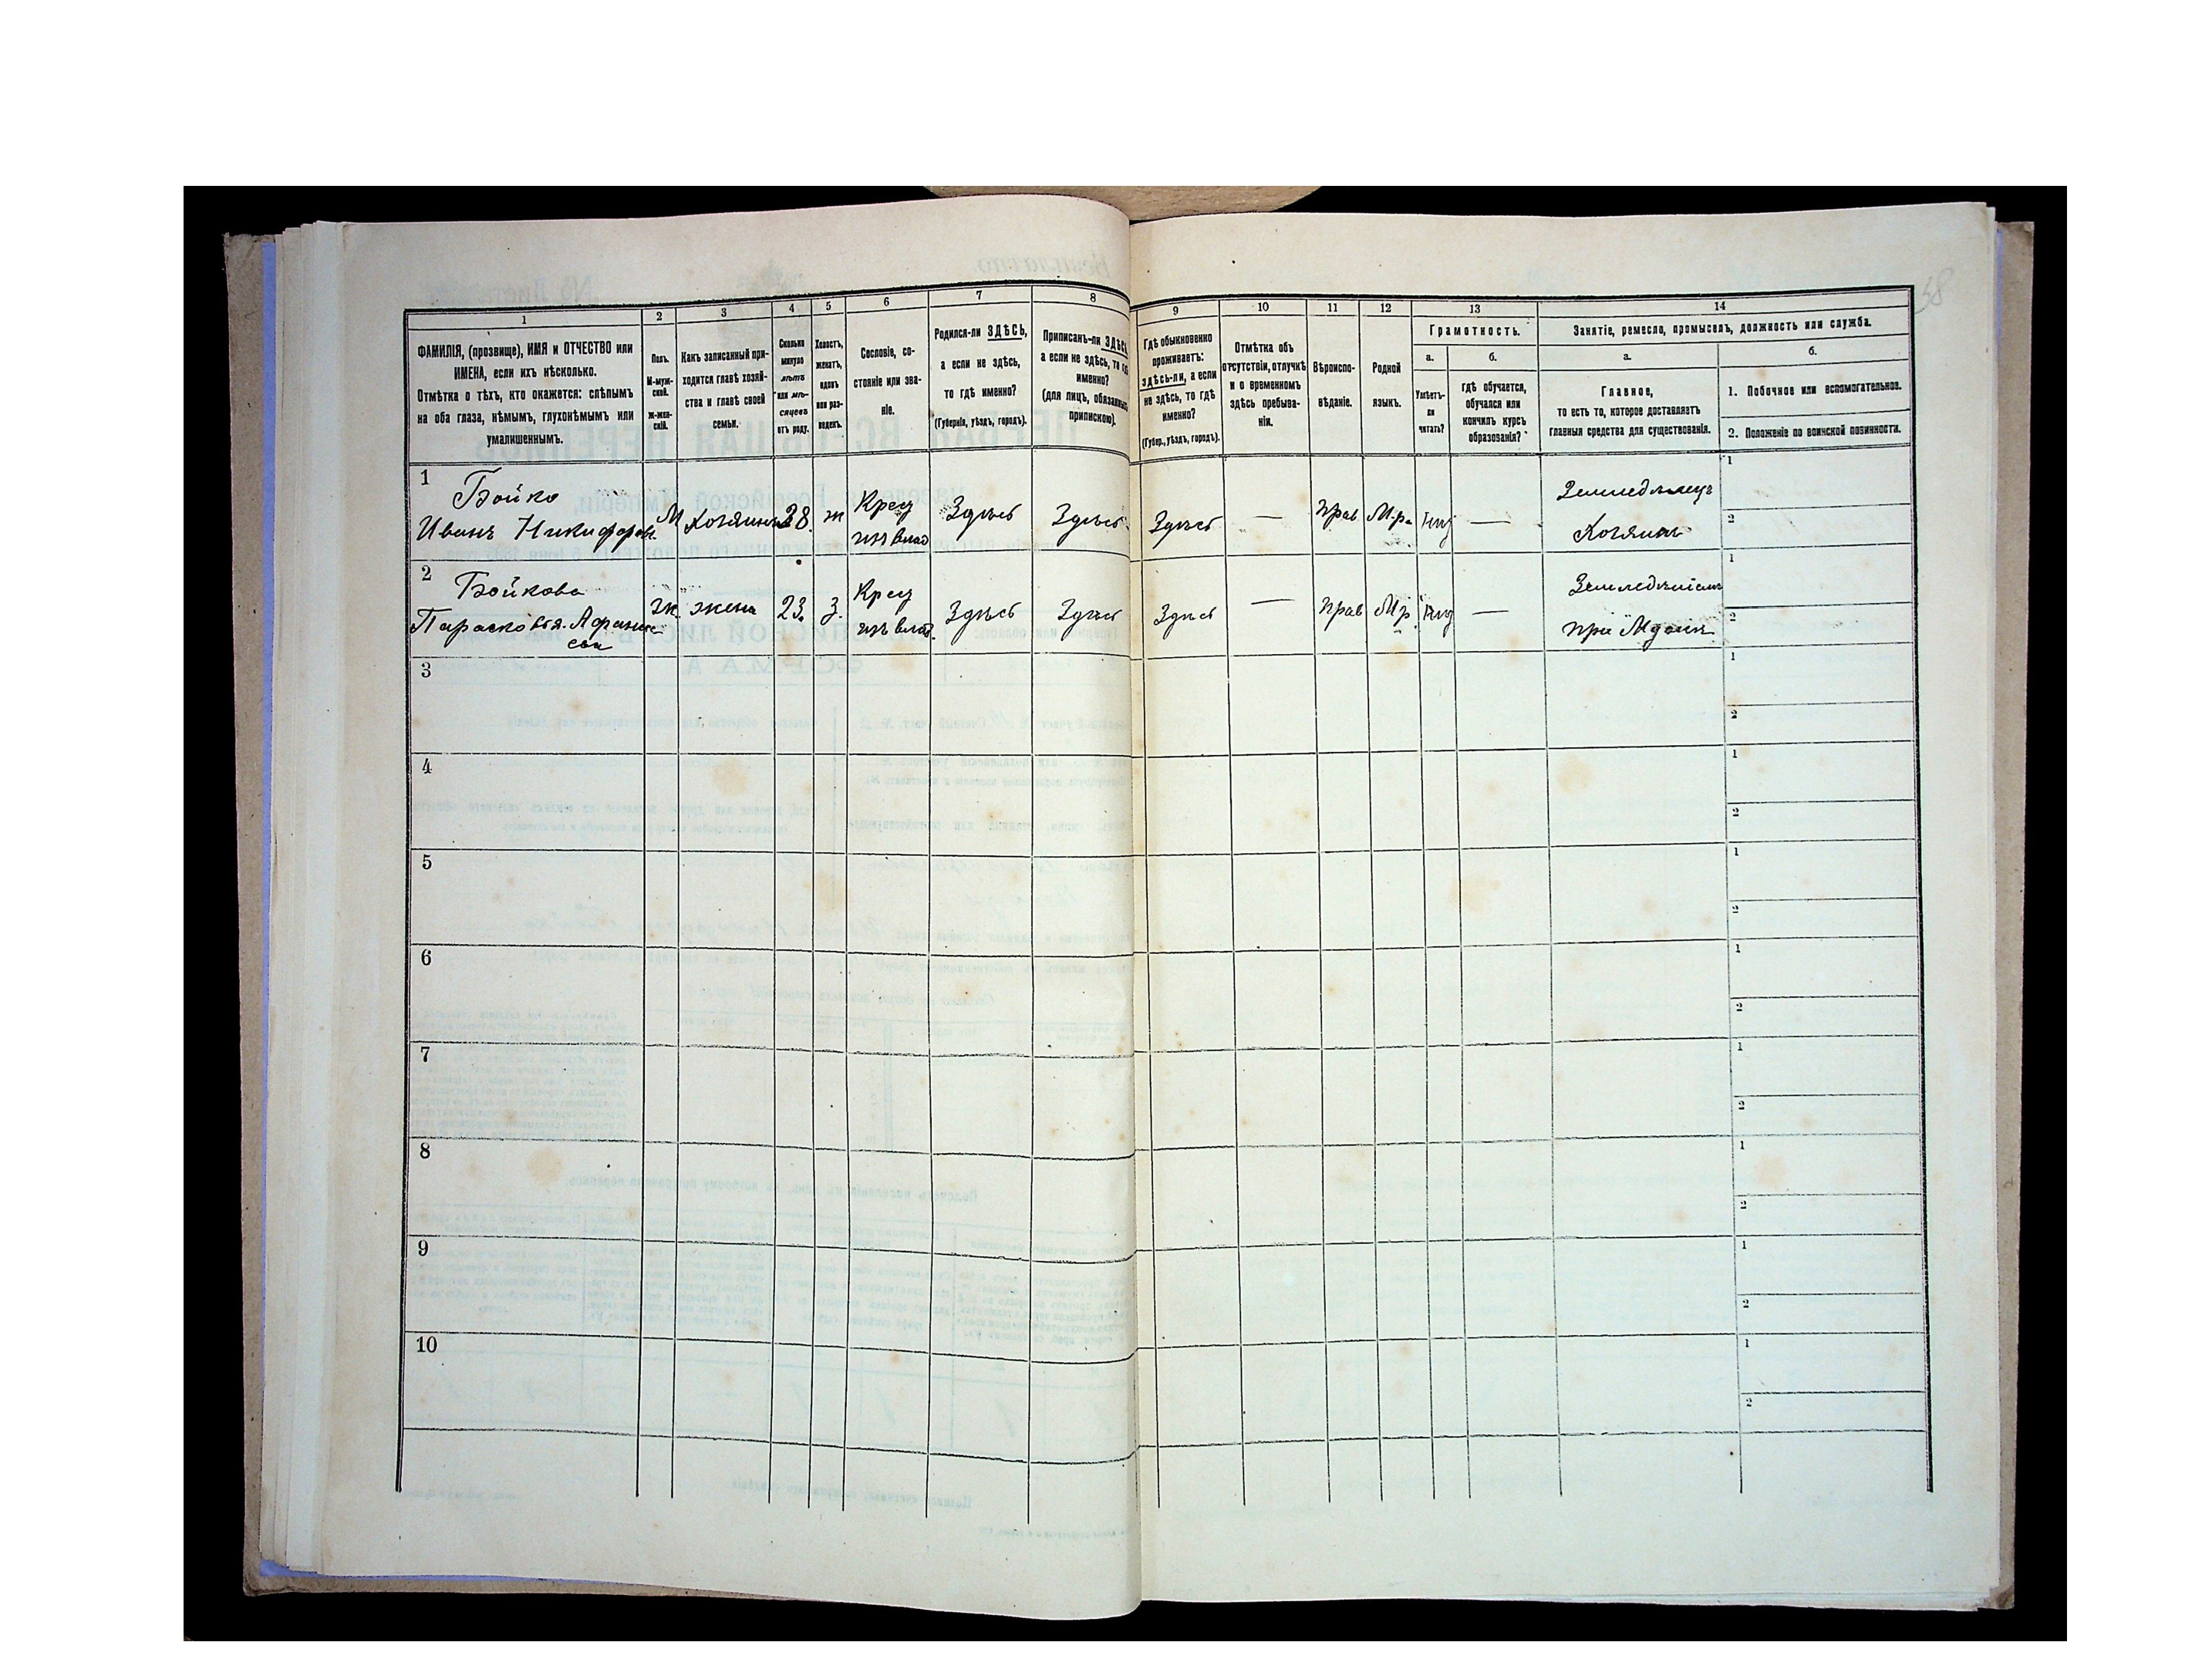 58
1 2 3 4 5 6 7 8 9 10 11 12 13 14
ФАМИЛІЯ, (прозвище), ИМЯ и ОТЧЕСТВО или
ИМЕНА, если ихъ нѣсколько.
Отмѣтка о тѣхъ, кто окажется: слѣпымъ
на оба глаза, нѣмымъ, глухонѣмымъ или
умалишеннымъ.
Полъ.
М-муж-
ской.
Ж-жен-
скій.
Какъ записанный при-
ходится главѣ хозяй-
ства и главѣ своей
семьи.
Сколько
минуло
лѣтъ
или мѣ-
сяцевъ
отъ роду.
Холостъ,
женатъ,
вдовъ
или раз-
веденъ.
Сословіе, со-
стояніе или зва-
ніе.
Родился-ли ЗДѢСЬ,
а если не здѣсь,
то гдѣ именно?
(Губернія, уѣздъ, городъ).
Приписанъ-ли ЗДѢСЬ
а если не здѣсь, то гдѣ
именно?
(для лицъ, обязанныхъ
припискою).
Гдѣ обыкновенно
проживаетъ:
здѣсь-ли, а если
не здѣсь, то гдѣ
именно?
(Губер., уѣздъ, городъ).
Отмѣтка объ
отсутствіи, отлучкѣ
и о временномъ
здѣсь пребыва-
ніи.
Вѣроиспо-
вѣданіе.
Родной
языкъ.
Грамотность.
а.
Умѣетъ-
ли
читать?
б.
гдѣ обучается,
обучался или
кончилъ курсъ
образованія?
Занятіе, ремесло, промыселъ, должность или служба.
а.
Главное,
то есть то, которое доставляетъ
главныя средства для существованія.
б.
1. Побочное или вспомогательное.
2. Положеніе по воинской повинности.
1 Бойко Крес Земледѣлецъ 1
Иванъ Никифоровъ М хозяинъ 28 ж изъ влад Здѣсь Здѣсь Здѣсь — Прав М.р. — Хозяинъ 2
2 Бойкова Крес 1
Парасковья Афанась- ж жена 23 з. изъ влад. Здѣсь Здѣсь Здѣсь — Прав М.р. — при 2
ева
3 1
2
4 1
2
5 1
2
6 1
2
7 1
2
8 1
2
9 1
2
10 1
2